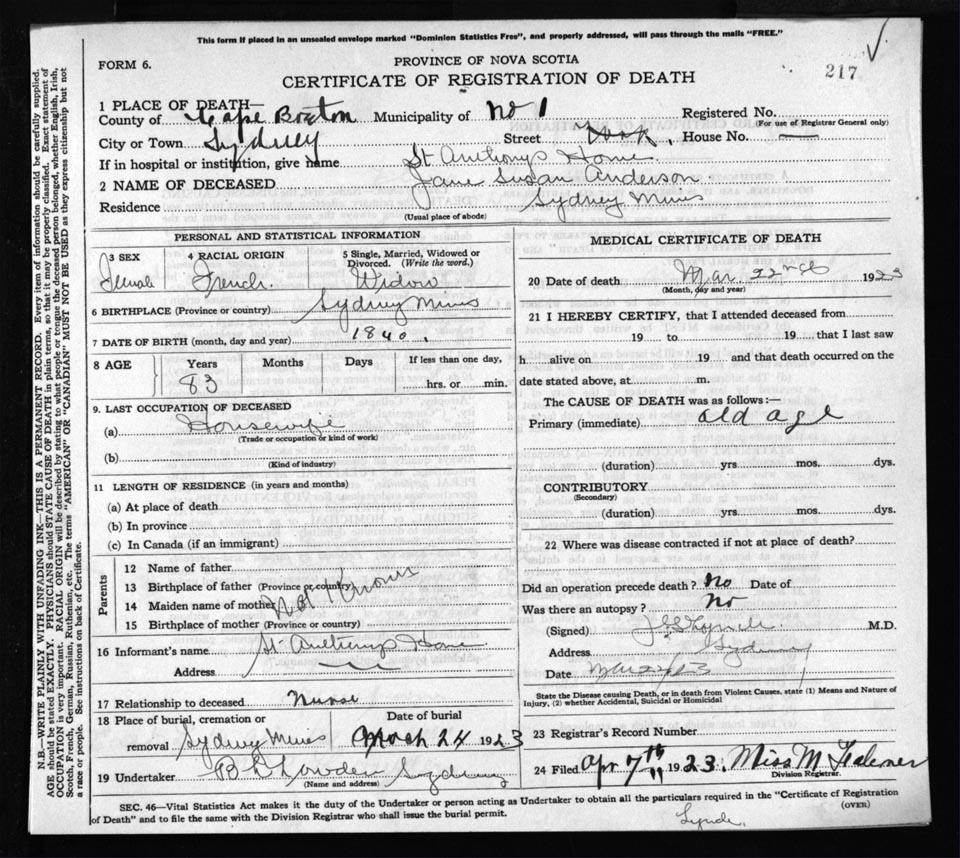 This form if placed in an unsealed envelope marked "Dominion Statistics Free", and properly addressed, will pass through the mails "FREE."
FORM 6.
PROVINCE OF NOVA SCOTIA
217
CERTIFICATE OF REGISTRATION OF DEATH
1 PLACE OF DEATH—
County of Cape Breton Municipality of No 1 Registered No.
(For use of Registrar General only)
City or Town Sydney Street York. House No. —
If in hospital or institution, give name St Anthonys Home
2 NAME OF DECEASED Jane Susan Anderson
Residence Sydney Mines
(Usual place of abode)
PERSONAL AND STATISTICAL INFORMATION
3 SEX 4 RACIAL ORIGIN 5 Single, Married, Widowed or Divorced. (Write the word.)
Female French. Widow
6 BIRTHPLACE (Province or country) Sydney Mines
7 DATE OF BIRTH (month, day and year) 1840.
8 AGE Years Months Days If less than one day,
83 hrs. or min.
9. LAST OCCUPATION OF DECEASED
(a) Housewife
(Trade or occupation or kind of work)
(b)
(Kind of industry)
11 LENGTH OF RESIDENCE (in years and months)
(a) At place of death
(b) In province
(c) In Canada (if an immigrant)
Parents
12 Name of father
13 Birthplace of father (Province or country)
14 Maiden name of mother Not Known
15 Birthplace of mother (Province or country)
16 Informant's name St. Anthonys Home
Address
17 Relationship to deceased Nurse
18 Place of burial, cremation or removal Sydney Mines
Date of burial
March 24 1923
19 Undertaker Sydney
(Name and address)
MEDICAL CERTIFICATE OF DEATH
20 Date of death Mar. 22nd 1923
(Month, day and year)
21 I HEREBY CERTIFY, that I attended deceased from
19 to 19 that I last saw
h alive on 19 and that death occurred on the
date stated above, at m.
The CAUSE OF DEATH was as follows:—
Primary (immediate) old age
(duration) yrs. mos. dys.
CONTRIBUTORY
(Secondary)
(duration) yrs. mos. dys.
22 Where was disease contracted if not at place of death?
Did an operation precede death? No Date of
Was there an autopsy? No
(Signed) Lynch M.D.
Address Sydney
Date Mar 22/23
State the Disease causing Death, or in death from Violent Causes, state (1) Means and Nature of
Injury, (2) whether Accidental, Suicidal or Homicidal
23 Registrar's Record Number
24 Filed Apr 7th 1923. Miss M
Division Registrar.
SEC. 46—Vital Statistics Act makes it the duty of the Undertaker or person acting as Undertaker to obtain all the particulars required in the "Certificate of Registration
of Death" and to file the same with the Division Registrar who shall issue the burial permit.
(OVER)
N.B.—WRITE PLAINLY WITH UNFADING INK—THIS IS A PERMANENT RECORD. Every item of information should be carefully supplied.
AGE should be stated EXACTLY. PHYSICIANS should STATE CAUSE OF DEATH in plain terms, so that it may be properly classified. Exact statement of
OCCUPATION is very important. RACIAL ORIGIN will be described by stating to what people or tongue the deceased person belonged, whether English, Irish,
Scotch, French, German, Russian, Ruthenian, etc. The terms "AMERICAN" OR "CANADIAN" MUST NOT BE USED as they express citizenship but not
a race or people. See instructions on back of Certificate.